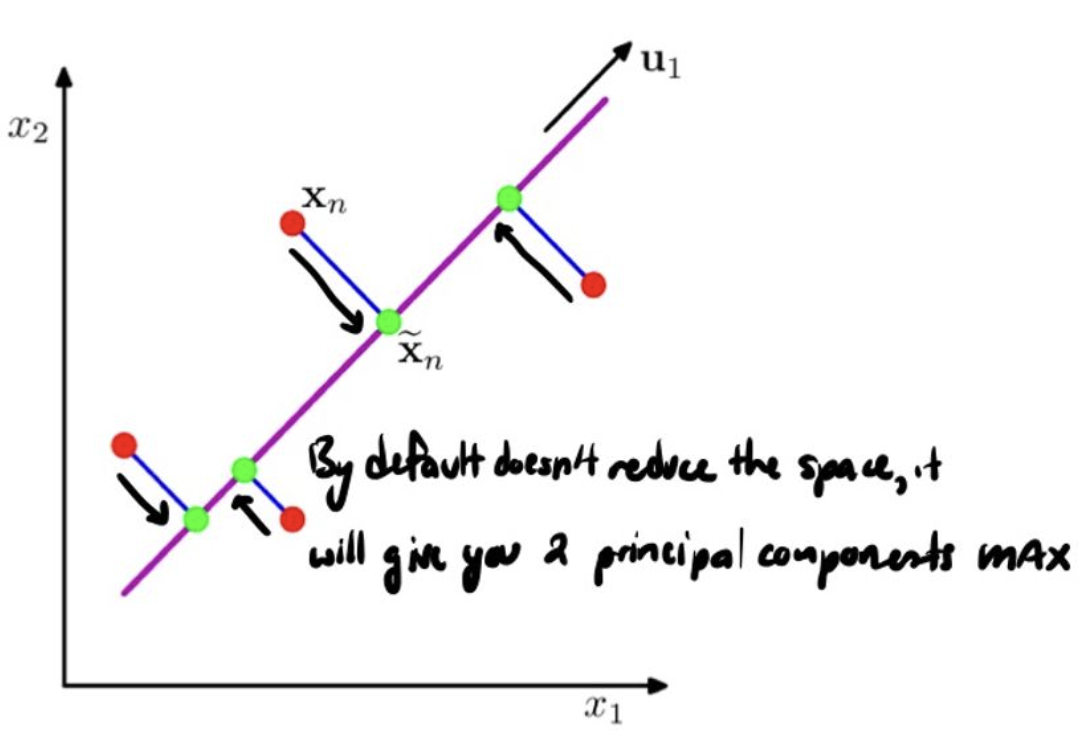 u₁
x₂
xₙ
x̃ₙ
By default doesn't reduce the space, it
will give you 2 principal components MAX
x₁